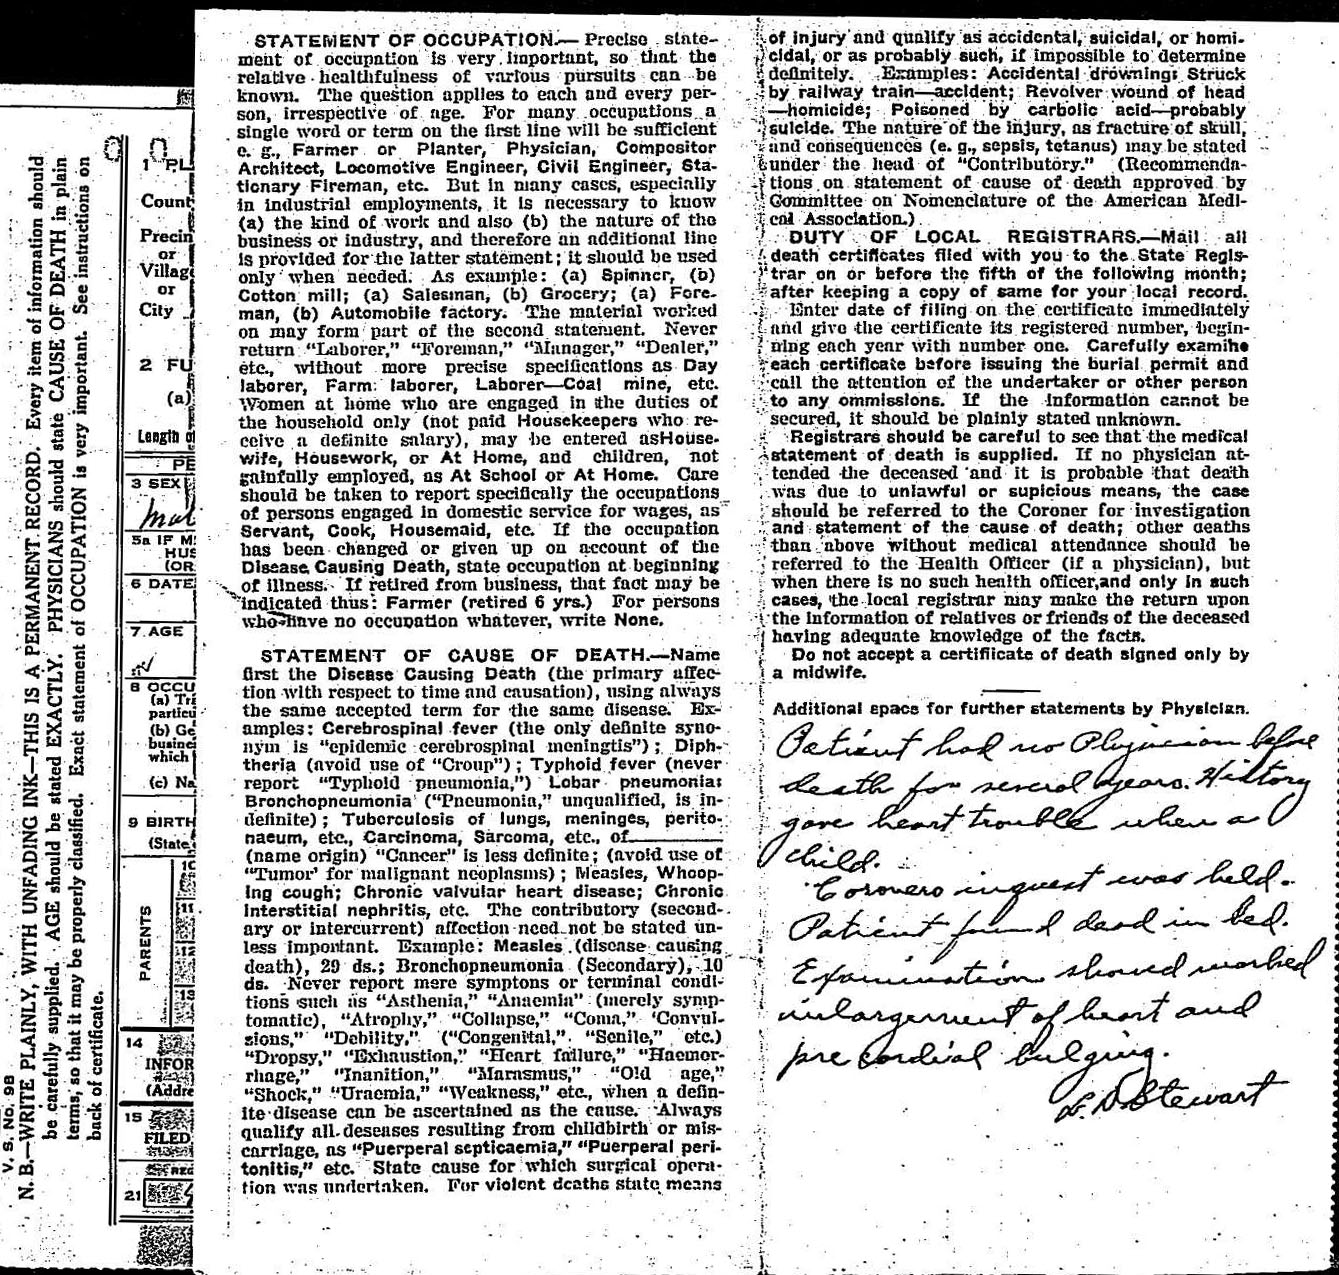 V. S. No. 98
N. B.—WRITE PLAINLY, WITH UNFADING INK—THIS IS A PERMANENT RECORD. Every item of information should
be carefully supplied. AGE should be stated EXACTLY. PHYSICIANS should state CAUSE OF DEATH in plain
terms, so that it may be properly classified. Exact statement of OCCUPATION is very important. See instructions on
back of certificate.
1 PL
Count
Precin
or
Villag
or
City
2 FU
(a)
Length of
PE
3 SEX
Mal
5a IF M
HUS
(OR
6 DATE
7 AGE
8 OCCU
(a) Tra
particu
(b) Ge
busine
which
(c) Na
9 BIRTH
(State
PARENTS
10
11
12
13
14
INFOR
(Addre
15
FILED
REG
21
STATEMENT OF OCCUPATION.— Precise state-
ment of occupation is very important, so that the
relative healthfulness of various pursuits can be
known. The question applies to each and every per-
son, irrespective of age. For many occupations a
single word or term on the first line will be sufficient
e. g., Farmer or Planter, Physician, Compositor
Architect, Locomotive Engineer, Civil Engineer, Sta-
tionary Fireman, etc. But in many cases, especially
in industrial employments, it is necessary to know
(a) the kind of work and also (b) the nature of the
business or industry, and therefore an additional line
is provided for the latter statement; it should be used
only when needed. As example: (a) Spinner, (b)
Cotton mill; (a) Salesman, (b) Grocery; (a) Fore-
man, (b) Automobile factory. The material worked
on may form part of the second statement. Never
return "Laborer," "Foreman," "Manager," "Dealer,"
etc., without more precise specifications as Day
laborer, Farm laborer, Laborer—Coal mine, etc.
Women at home who are engaged in the duties of
the household only (not paid Housekeepers who re-
ceive a definite salary), may be entered asHouse-
wife, Housework, or At Home, and children, not
gainfully employed, as At School or At Home. Care
should be taken to report specifically the occupations
of persons engaged in domestic service for wages, as
Servant, Cook, Housemaid, etc. If the occupation
has been changed or given up on account of the
Disease Causing Death, state occupation at beginning
of illness. If retired from business, that fact may be
indicated thus: Farmer (retired 6 yrs.) For persons
who have no occupation whatever, write None.
STATEMENT OF CAUSE OF DEATH.—Name
first the Disease Causing Death (the primary affec-
tion with respect to time and causation), using always
the same accepted term for the same disease. Ex-
amples: Cerebrospinal fever (the only definite syno-
nym is "epidemic cerebrospinal meningtis"); Diph-
theria (avoid use of "Croup"); Typhoid fever (never
report "Typhoid pneumonia,") Lobar pneumonia:
Bronchopneumonia ("Pneumonia," unqualified, is in-
definite); Tuberculosis of lungs, meninges, perito-
naeum, etc., Carcinoma, Sarcoma, etc., of
(name origin) "Cancer" is less definite; (avoid use of
"Tumor' for malignant neoplasms); Measles, Whoop-
ing cough; Chronic valvular heart disease; Chronic
interstitial nephritis, etc. The contributory (second-
ary or intercurrent) affection need not be stated un-
less important. Example: Measles (disease causing
death), 29 ds.; Bronchopneumonia (Secondary), 10
ds. Never report mere symptons or terminal condi-
tions such as "Asthenia," "Anaemia" (merely symp-
tomatic), "Atrophy," "Collapse," "Coma," 'Convul-
sions," "Debility," ("Congenital," "Senile," etc.)
"Dropsy," "Exhaustion," "Heart failure," "Haemor-
rhage," "Inanition," "Marasmus," "Old age,"
"Shock," "Uraemia," "Weakness," etc., when a defin-
ite disease can be ascertained as the cause. Always
qualify all deseases resulting from childbirth or mis-
carriage, as "Puerperal septicaemia," "Puerperal peri-
tonitis," etc. State cause for which surgical opera-
tion was undertaken. For violent deaths state means
of injury and qualify as accidental, suicidal, or homi-
cidal, or as probably such, if impossible to determine
definitely. Examples: Accidental drowning; Struck
by railway train—accident; Revolver wound of head
—homicide; Poisoned by carbolic acid—probably
suicide. The nature of the injury, as fracture of skull,
and consequences (e. g., sepsis, tetanus) may be stated
under the head of "Contributory." (Recommenda-
tions on statement of cause of death approved by
Committee on Nomenclature of the American Medi-
cal Association.)
DUTY OF LOCAL REGISTRARS.—Mail all
death certificates filed with you to the State Regis-
trar on or before the fifth of the following month;
after keeping a copy of same for your local record.
Enter date of filing on the certificate immediately
and give the certificate its registered number, begin-
ning each year with number one. Carefully examine
each certificate before issuing the burial permit and
call the attention of the undertaker or other person
to any ommissions. If the information cannot be
secured, it should be plainly stated unknown.
Registrars should be careful to see that the medical
statement of death is supplied. If no physician at-
tended the deceased and it is probable that death
was due to unlawful or supicious means, the case
should be referred to the Coroner for investigation
and statement of the cause of death; other deaths
than above without medical attendance should be
referred to the Health Officer (if a physician), but
when there is no such health officer,and only in such
cases, the local registrar may make the return upon
the information of relatives or friends of the deceased
having adequate knowledge of the facts.
Do not accept a certifiicate of death signed only by
a midwife.
Additional space for further statements by Physician.
Patient had no Physician before
death for several years. History
gave heart trouble when a
child.
Coroners inquest was held.
Patient found dead in bed.
Examination showed marked
inlargement of heart and
pre cordial bulging.
L. D. Stewart